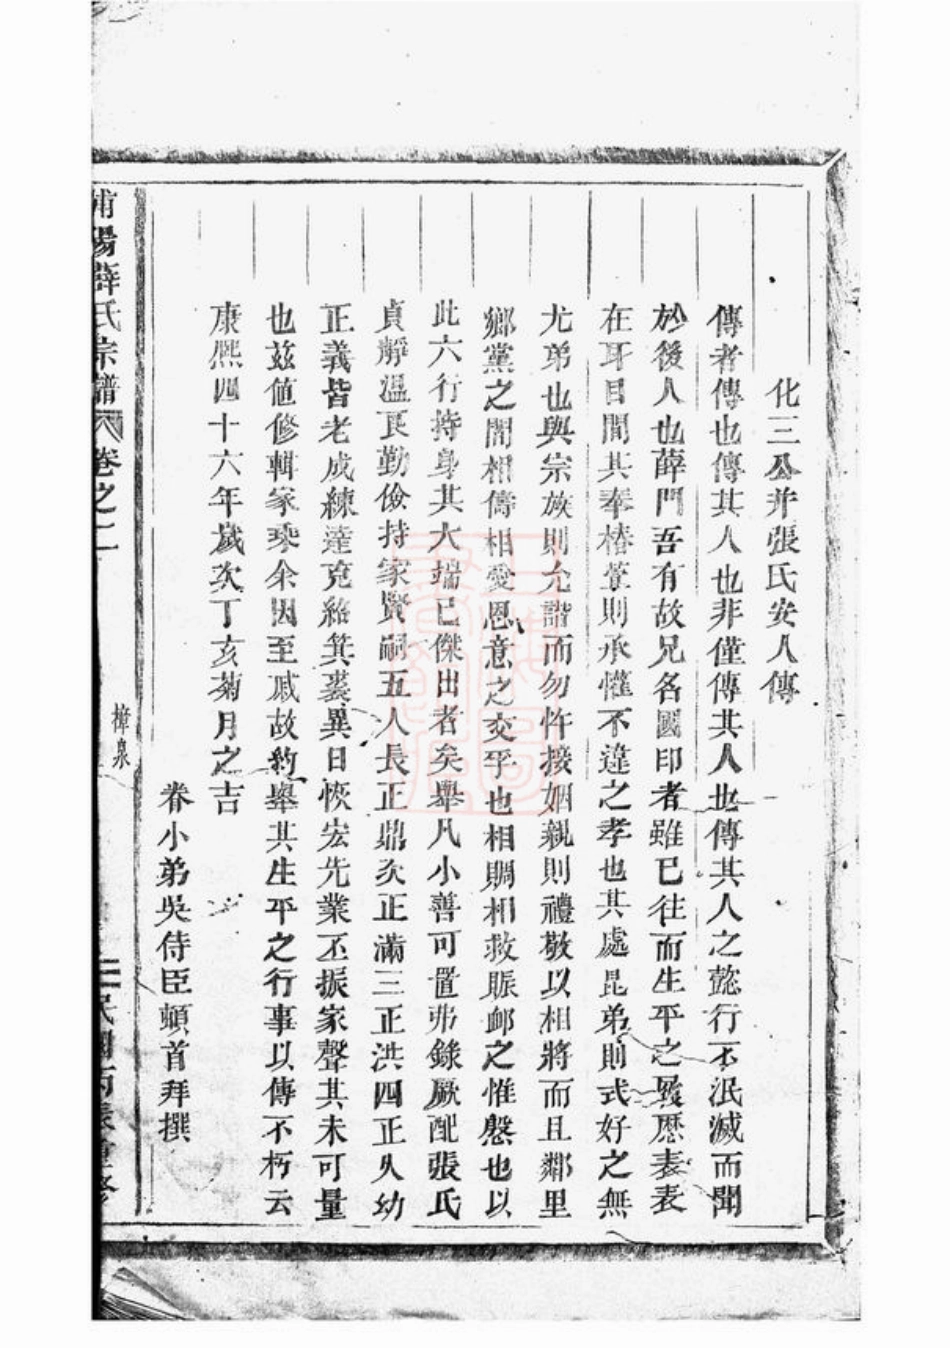 化三公并張氏安人傳
傳者傳也傳其人也非僅傳其人也傳其人之懿行不泯滅而聞
於後人也薛門吾有故兄名國印者雖已往而生平之履歷表表
在耳目間其奉椿萱則承懽不違之孝也其處昆弟則式好之無
尤弟也與宗族則允諧而勿忤接姻親則禮敬以相將而且鄰里
鄉黨之閒相儔相愛恩意之交孚也相賙相救賑卹之惟慇也以
此六行持身其大端已傑出者矣舉凡小善可置弗錄厥配張氏
貞靜温良勤儉持家賢嗣五人長正鼎次正滿三正洪四正久幼
正義皆老成練達克紹箕裘異日恢宏先業丕振家聲其未可量
也茲値修輯家乘余因至戚故約舉其生平之行事以傳不朽云
康熙四十六年歲次丁亥菊月之吉
眷小弟吳侍臣頓首拜撰
浦陽薛氏宗譜 卷之一 樟泉 民國丙辰重修